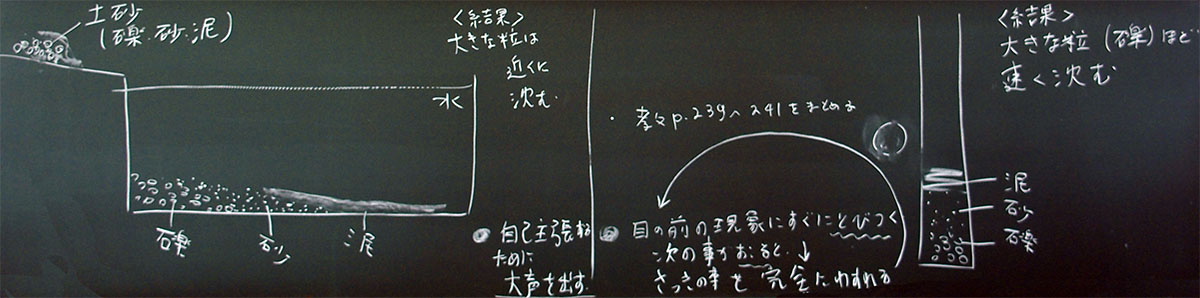 土砂
(礫・砂・泥)
水
礫
砂
泥
<結果>
大きな粒は
近くに
沈む
自己主張
ために
大声を出す
・教p.239〜241をまとめる
目の前の現象にすぐにとびつく
次の事がおると
さっきの事を完全にわすれる
<結果>
大きな粒(礫)ほど
速く沈む
泥
砂
礫